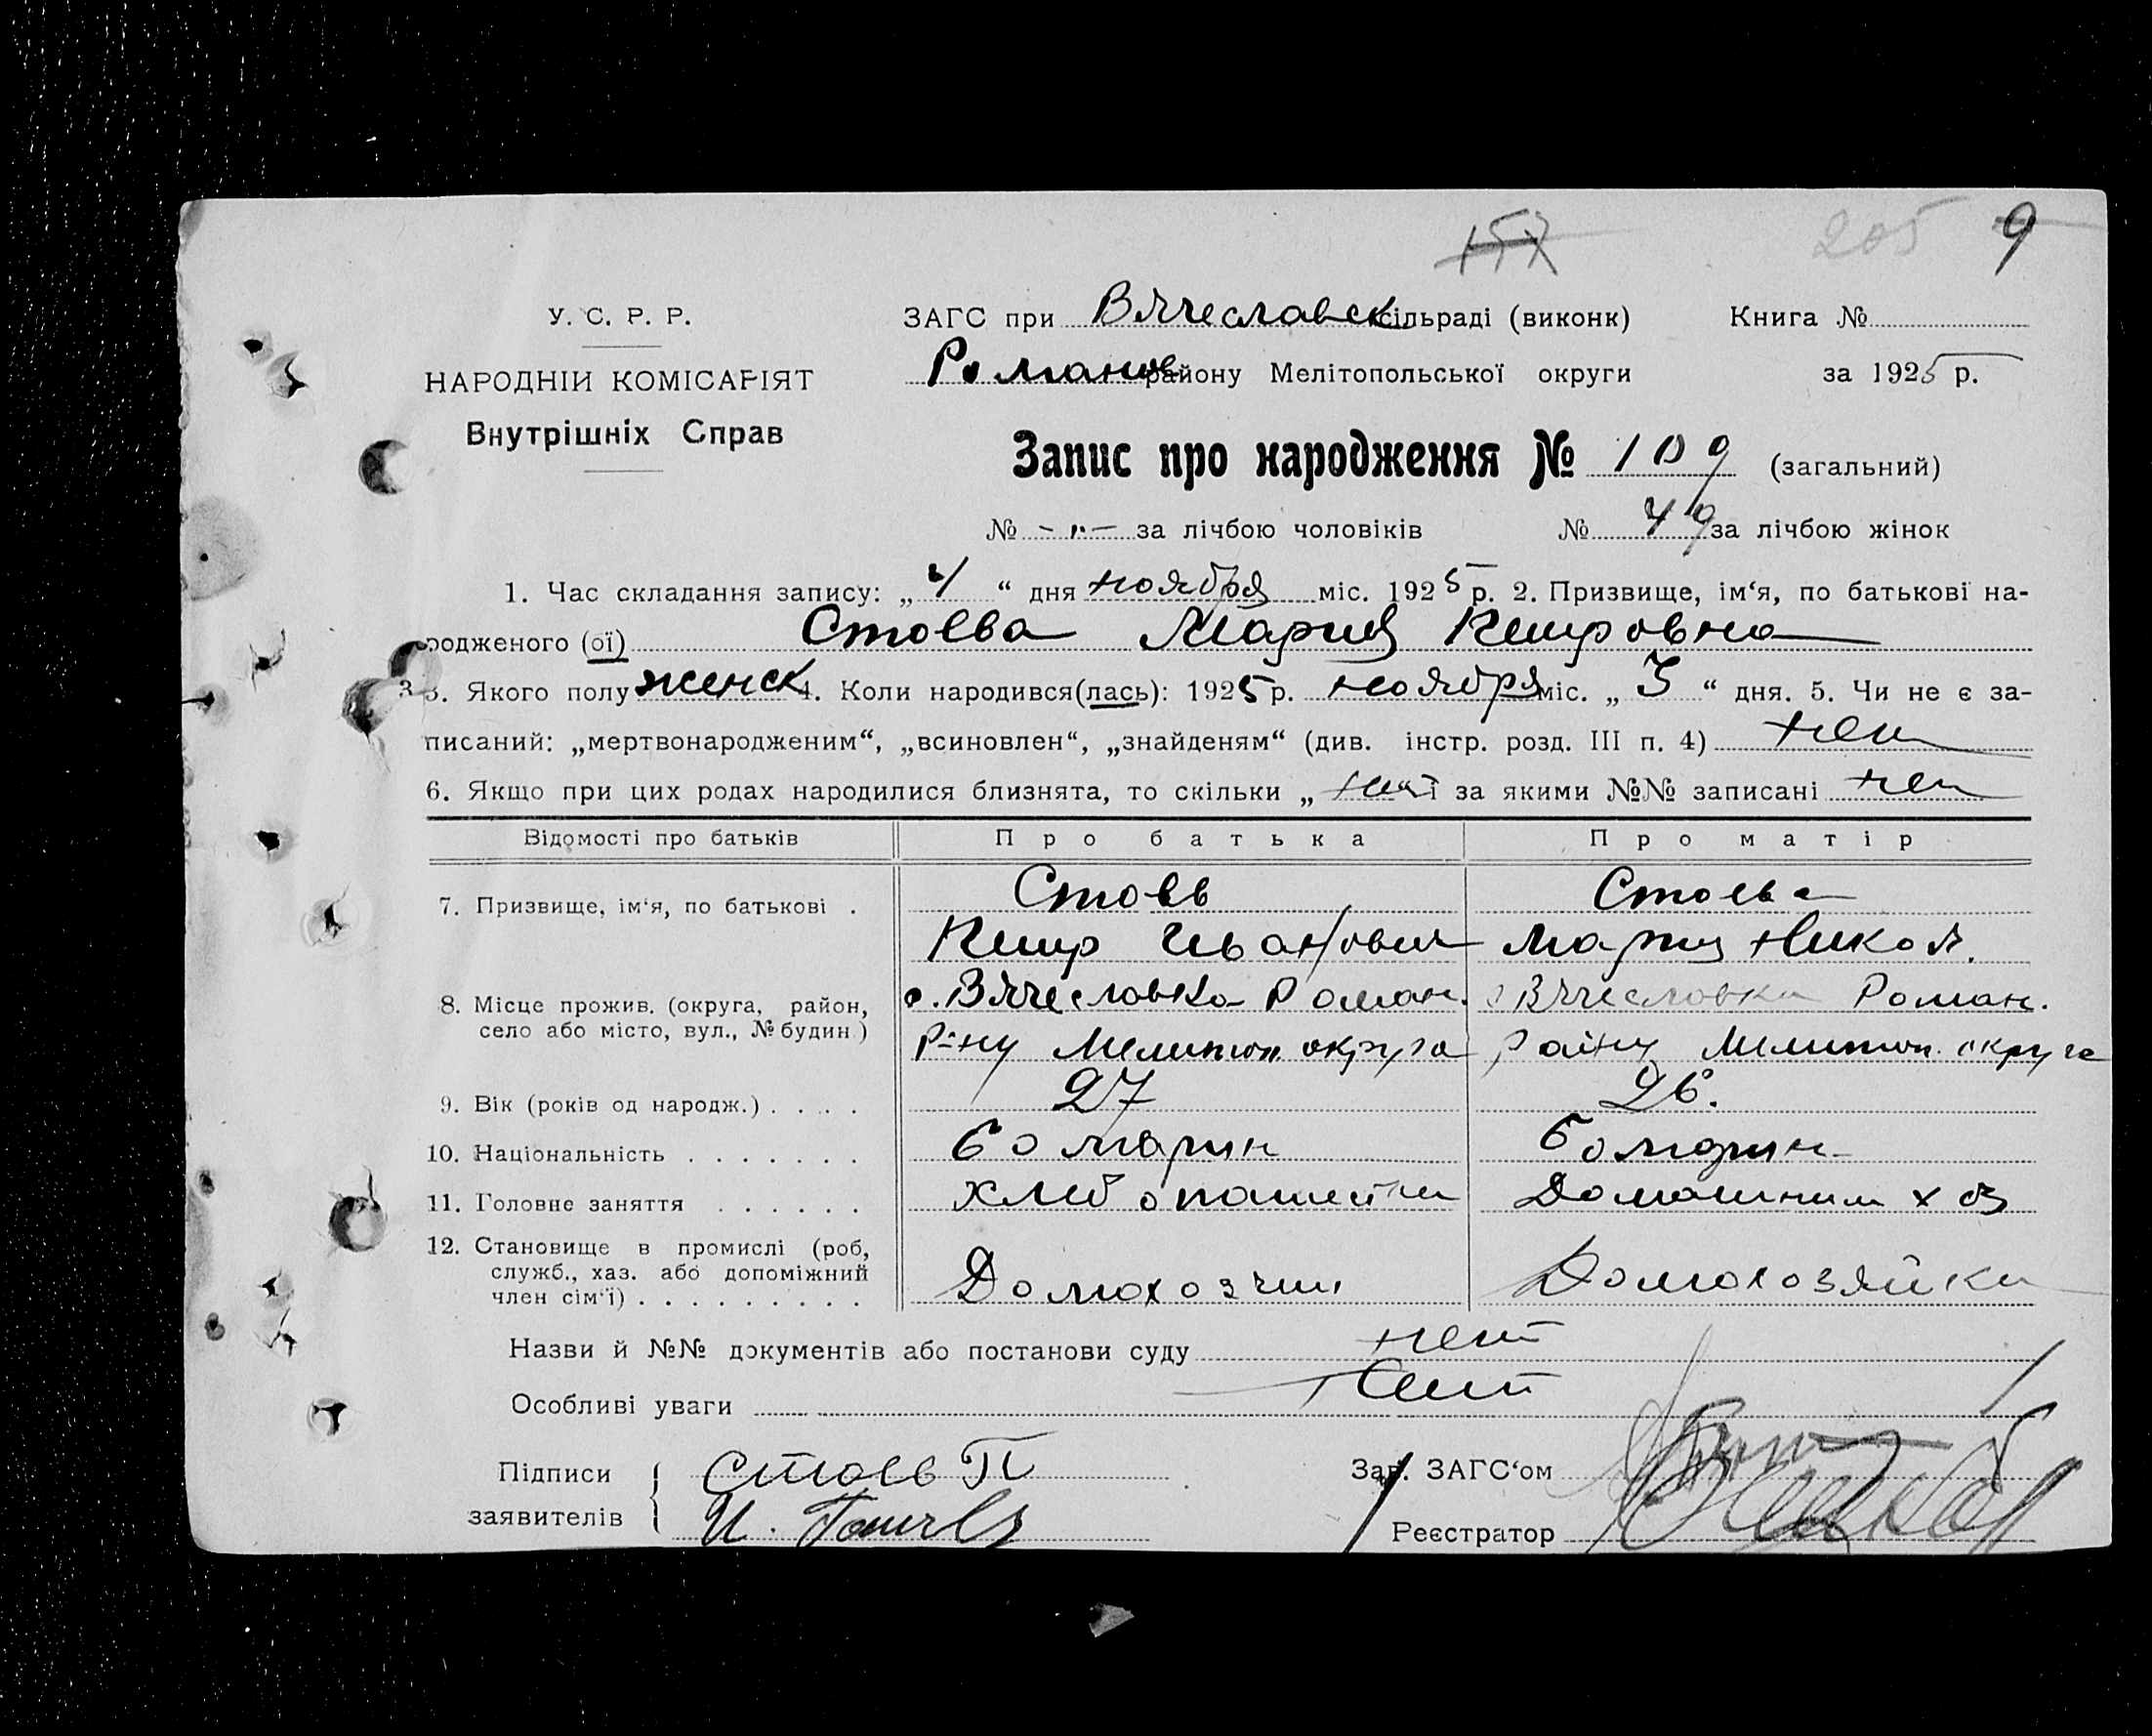 157 205 9
У. С. Р. Р.
НАРОДНІЙ КОМІСАРІЯТ
Внутрішніх Справ
ЗАГС при Вячеславск сільраді (виконк) Книга №
Романов району Мелітопольської округи за 1925 р.
Запис про народження № 109 (загальний)
№ - „ - за лічбою чоловіків № 49 за лічбою жінок
1. Час складання запису: „4“ дня ноября міс. 1925 р. 2. Призвище, ім‘я, по батькові на-
родженого (ої) Стоева Мария Петровна
3. Якого полу женск 4. Коли народився(лась): 1925 р. ноября міс. „3“ дня. 5. Чи не є за-
писаний: „мертвонародженим“, „всиновлен“, „знайденям“ (див. інстр. розд. III п. 4) нет
6. Якщо при цих родах народилися близнята, то скільки „нет і за якими №№ записані нет
Відомості про батьків Про батька Про матір
7. Призвище, ім‘я, по батькові . Стоев Стоева
Петр Иванович Мария Никол.
8. Місце прожив. (округа, район, с. Вячеславка Роман. с Вячеславка Роман.
село або місто, вул., № будин) р-ну Мелитоп. округа району Мелитоп. округа
9. Вік (років од народж.) . . . . 27 26.
10. Національність . . . . . . . болгарин болгарин
11. Головне заняття . . . . . . хлебопашеств Домашним хоз
12. Становище в промислі (роб, служб., хаз. або допоміжний член сім‘ї) . . . . . . . . . Домохозяин Домохозяйка
Назви й №№ документів або постанови суду нет
Особливі уваги нет
Підписи Стоев П Зав. ЗАГС‘ом
заявителів И. Реєстратор